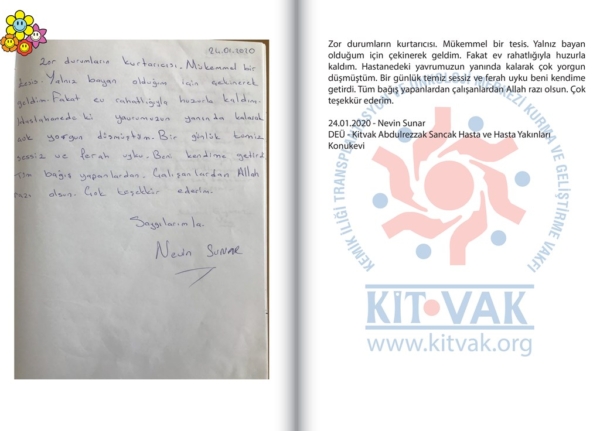 24.01.2020
Zor durumların kurtarıcısı. Mükemmel bir
tesis. Yalnız bayan olduğum için çekinerek
geldim. Fakat ev rahatlığıyla huzurla kaldım.
Hastanede ki yavrumuzun yanında kalarak
çok yorgun düşmüştüm. Bir günlük temiz
sessiz ve ferah uyku. Beni kendime getird
bağış yapanlardan. Çalışanlardan Allah
razı olsun. Çok teşekkür ederim.
Saygılarımla.
Nevin SUNAR
Zor durumların kurtarıcısı. Mükemmel bir tesis. Yalnız bayan
olduğum için çekinerek geldim. Fakat ev rahatlığıyla huzurla
kaldım. Hastanedeki yavrumuzun yanında kalarak çok yorgun
düşmüştüm. Bir günlük temiz sessiz ve ferah uyku beni kendime
getirdi. Tüm bağış yapanlardan çalışanlardan Allah razı olsun. Çok
teşekkür ederim.
24.01.2020 - Nevin Sunar
DEÜ - Kitvak Abdulrezzak Sancak Hasta ve Hasta Yakınları
Konukevi
KEMİK İLİĞİ TRANSPLANTASYON VE MERKEZİ KURMA VE GELİŞTİRME VAKFI
KİT VAK
www.kitvak.org